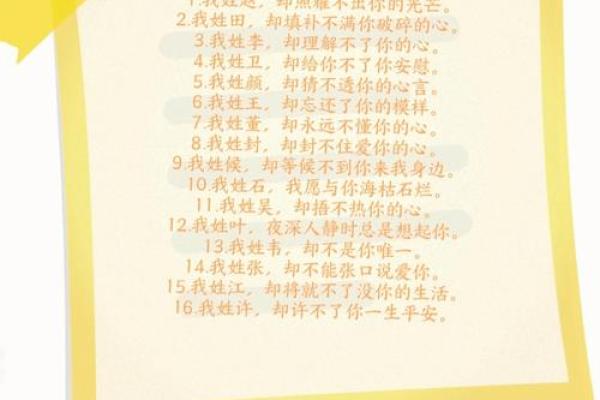 1.我姓赵，却照耀不出你的光芒。
2.我姓田，却填补不满你破碎的心。
3.我姓李，却理解不了你的心。
4.我姓卫，却给你不了你安慰。
5.我姓颜，却猜不透你的心言。
6.我姓王，却忘还了你的模样。
7.我姓董，却永远不懂你的心。
8.我姓封，却封不住爱你的心。
9.我姓候，却等候不到你来我身边。
10.我姓石，我愿与你海枯石烂。
11.我姓吴，却捂不热你的心。
12.我姓叶，夜深人静时总是想起你。
13.我姓韦，却不是你唯一。
14.我姓张，却不能张口说爱你。
15.我姓江，却将就不了没你的生活。
16.我姓许，却许不了你一生平安。